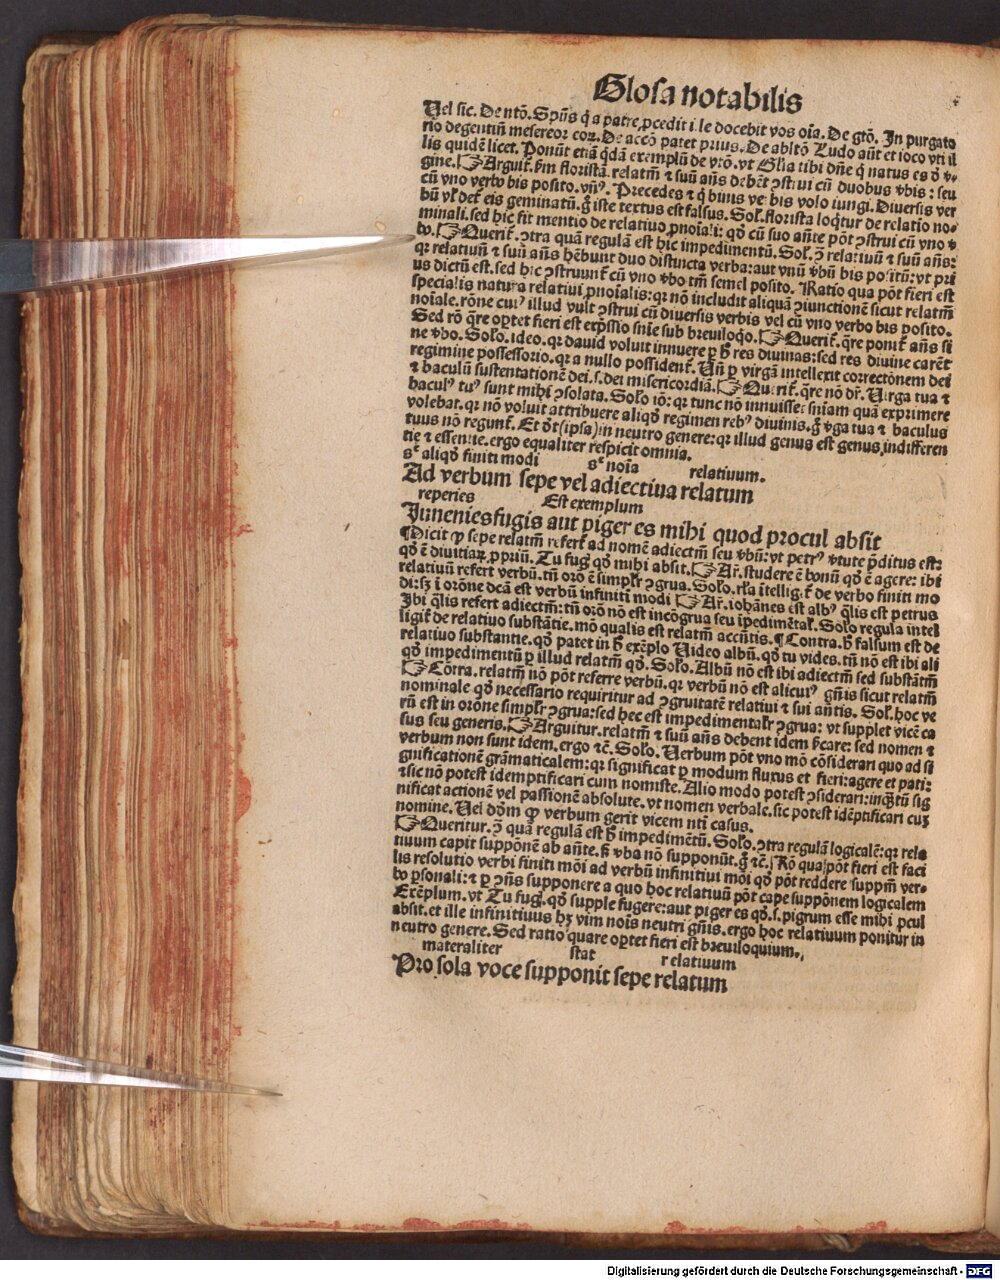 Glosa notabilis
Vel sic. De ntō. Spūs q̄ a patre ꝓcedit i. le docebit vos oīa. De gtō. In purgato
rio degentiū misereor eoꝝ. De accō patet prius. De abltō Ludo aūt et ioco vti il
lis quidē licet. Ponūt etiā q̄dā exemplū de vtō. vt Glia tibi dn̄e q̄ natus es ō v̓
gine. ☞Arguit̄. ẜm floristā. relatm̄ ⁊ suū añs debēt ꝯstrui cū duobus v̓bis: seu
cū vno verbo bis posito. vn̄. Precedēs ⁊ q̄ binis ver bis volo iungi. Diuersis ver
bū vl̓ def̄ eis geminatū. g̊ iste textus est falsus. Sol̓. florista loq̄tur de relatio no⸗
minali. sed hic fit mentio de relatiuo ꝓnoīali: qd̓ cū suo añte pōt ꝯstrui cū vno v̓
bo. ☞Querit̄. ꝯtra quā regulā est hic impedimentū. Sol̓. ꝯ̄ relatiuū ⁊ suū añs:
qꝛ relatiuū ⁊ suū añs hēbunt duo distincta verba: aut vnū v̓bū bis positū: vt pri
us dictū est. sed hic ꝯstruunt̄ cū vno v̓bo tm̄ semel posito. Ratio qua pōt fieri est
specialis natura relatiui ꝓnoīalis: qꝛ nō includit aliquā ꝯiunctionē sicut relatm̄
noīale. rōne cuiꝰ illud vult ꝯstrui cū diuersis verbis vel cū vno verbo bis posito.
Sed rō q̄re oꝑtet fieri est exp̄ssio snīe sub breuiloq̊o. ☞Querit̄. q̄re ponit̄ añs si
ne v̓bo. Solo. ideo. qꝛ dauid voluit innuere ꝑ h̓ res diuinas: sed res diuine carēt
regimine possessorio. qꝛ a nullo possident̄. Vñ ꝑ virgā intellexit correctōnem dei
⁊ baculū sustentationē dei. s. dei misericordiā. ☞Querit̄. q̄re nō dr̄. Virga tua ⁊
baculꝰ tuꝰ sunt mihi ꝯsolata. Solo iō: qꝛ tunc nō innuisset sniam quā exprimere
volebat. qꝛ nō voluit attribuere aliqd̓ regimen rebꝰ diuinis. g̊ v̓ga tua ⁊ baculus
tuus nō regunt̄. Et d̓t (ipsa) in neutro genere: qꝛ illud genus est genus indifferen
tie ⁊ essentie. ergo equaliter respicit omnia.
sꝫ aliqd̓ finiti modi sꝫ noīa relatiuum.
Ad verbum sepe vel adiectiua relatum
reperies Est exemplum
Iuuenies fugis aut piger es mihi quod procul absit
¶Dicit ꝙ sepe relatm̄ refert̄ ad nomē adiectm̄ seu v̓bū: vt petrꝰ v̓tute p̄ditus est:
qd̓ ē diuitiaꝝ ꝓpriū. Tu fug̓ qd̓ mihi absit. ☞Ar̄. studere ē bonū qd̓ ē agere: ibi
relatiuū refert verbū. tn̄ orō ē simplr̓ ꝯgrua. Solo. rl̓a ītellig̓t̄ de verbo finiti mo
di: sꝫ ī orōne dcā est verbū infiniti modi ☞Ar̄. iohānes est albꝰ q̄lis est petrus
Ibi q̄lis refert adiectm̄: tn̄ orō nō est incōgrua seu īpedimētal̓. Solo regula intel
ligit̄ de relatiuo substātie. mō qualis est relatm̄ accn̄tis. ¶Contra. h̓ falsum est de
relatiuo substantie. qd̓ patet in h̓ exēplo Video albū. qd̓ tu vides. tn̄ nō est ibi ali
qd̓ impedimentū ꝑ illud relatm̄ qd̓. Solo. Albū nō est ibi adiectm̄ sed substātm̄
☞Cōtra. relatm̄ nō pōt referre verbū. qꝛ verbū nō est alicuiꝰ gn̄is sicut relatm̄
nominale qd̓ necessario requiritur ad ꝯgruitatē relatiui ⁊ sui añtis. Sol̓. hoc ve
rū est in orōne simplr̓ ꝯgrua: sed hec est impedimentalr̓ ꝯgrua: vt supplet vicē ca
sus seu generis. ☞Arguitur. relatm̄ ⁊ suū añs debent idem ẜcare: sed nomen ⁊
verbum non sunt idem. ergo ⁊c̄. Solo. Verbum pōt vno mō cōsiderari quo ad si
gnificationē grāmaticalem: qꝛ significat ꝑ modum fluxus et fieri: agere et pati:
⁊ sic nō potest idemptificari cum nomīe. Alio modo potest ꝯsiderari: inq̄tū sig
nificat actionē vel passionē absolute. vt nomen verbale. sic potest idēptificari cuꝫ
nomine. Vel dōm ꝙ verbum gerit vicem nti casus.
☞Queritur. ꝯ̄ quā regulā est h̓ impedimētū. Solo. ꝯtra regulā logicalē: qꝛ rela
tiuum capit suppōnē ab añte. ẜ v̓ba nō supponūt. g̊ ⁊c̄. Rō qua pōt fieri est faci
lis resolutio verbi finiti mōi ad verbū infinitiui mōi qd̓ pōt reddere suppm̄ ver⸗
bo ꝑsonali: ⁊ ꝑ ꝯn̄s supponere a quo hoc relatiuū pōt cape suppōnem logicalem
Exēplum. vt Tu fug̓. qd̓ supple fugere: aut piger es qd̓. s. pigrum esse mihi ꝓcul
absit. et ille infinitiuus hꝫ vim nois neutri gn̄is. ergo hoc relatiuum ponitur in
neutro genere. Sed ratio quare oꝑtet fieri est breuiloquium.
materaliter stat relatiuum
Pro sola voce supponit sepe relatum
Digitalisierung gefördert durch die Deutsche Forschungsgemeinschaft - DFG